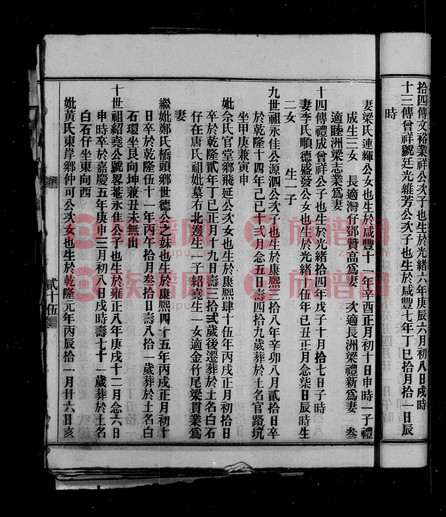 拾四傳文裕業祥公次子也生於光緒六年庚辰六月初八日戌時
十三傳曾祥號廷光維芳公次子也生於咸豐七年丁巳拾月拾一日辰
時
妻梁氏連輝公女也生於咸豐十一年辛酉正月初十日申時一子禮
成生三女　長適灣仔鄧贊高為妻　次適長洲梁禮新為妻　叁
適睦洲梁志業為妻
十四傳禮成曾祥公子也生於光緒拾四年戊子十月拾七日子時
妻李氏順德盛發公女也生於光緒拾五年己丑正月念柒日辰時生
二女　生一子
九世祖永佳公源泗公次子也生於康熙三拾八年辛卯八月貳拾日卒
於乾隆十四年己巳十弍月念五日壽四拾九歲葬於土名官路坑
坐甲庚兼寅申
妣佘氏官堂鄉飛延公次女也生於康熙肆十伍年丙戌正月初拾日
卒於乾隆貳年丁巳正月十九日壽三拾弍歲後遷葬於土名白石
仔在唐氏祖妣墓右北邊生一子紹堯生一女適金竹尾梁貫業為
妻
繼妣鄭氏橋頭鄉世德公之妹也生於康熙四十五年丙戌正月初十
日卒於乾隆伍十一年丙午拾月叁拾日壽八拾一歲葬於土名白
石環坐艮向坤兼丑未無出
十世祖紹堯公號畧菴永佳公子也生於雍正八年庚戌十二月念六日
申時卒於嘉慶五年庚申三月初八日戌時壽七十一歲葬於土名
白石仔坐東向西
妣黃氏東岸鄉仰可公次女也生於乾隆元年丙辰拾一月廿六日亥
貳十伍